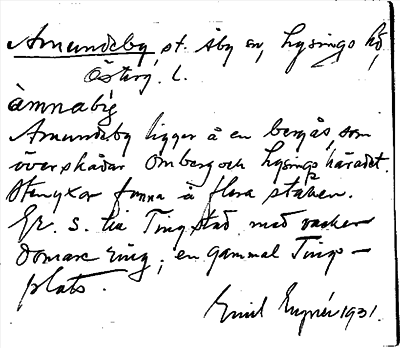 Amundeby, st. Åby sn, Lysings hd,
Österg. l.
àmnabı̨
Amundeby ligger å en bergås, som
överskådar Omberg och Lysings häradet.
Stenyxor funna å flera ställen.
Gr. S. till Tingstad med vacker
domare ring, en gammal Tings-
plats.
Emil 1931.